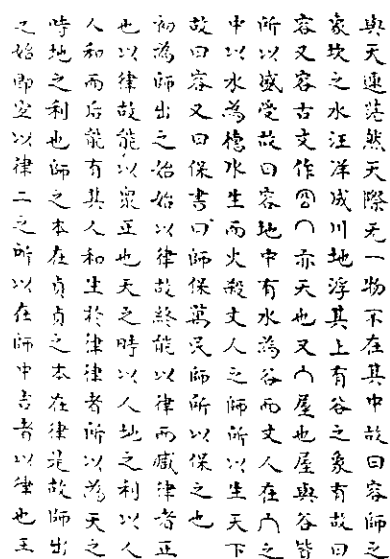 與天連茫然天際无一物不在其中故曰容師之
象坎之水汪洋成川地浮其上有谷之象有故曰
容又容古文作㓉宀亦天也又宀屋也屋與谷皆
所以盛受故曰容地中有水為谷而丈人在宀之
中以水為檐水生而火殺丈人之師所以生天下
故曰容又曰保書曰師保萬民師所以保之也
初為師出之始始以律故終能以律而臧律者正
也以律故能以眾正也天之時以人地之利以人
人和而后能有其人和生於律律者所以為天之
時地之利也師之本在貞貞之本在律是故師出
之始即定以律二之所以在師中吉者以律也王